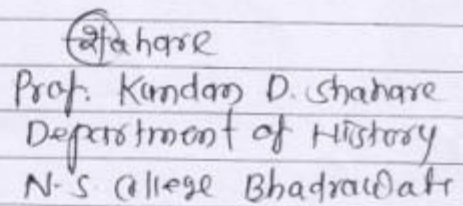 शahare
Prof. Kundan D. Shahare
Department of History
N.S College Bhadrawati